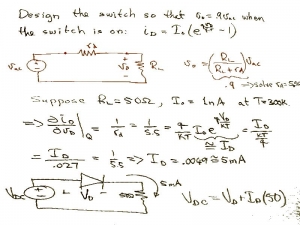 Design the switch so that v₀ = .9vac when
the switch is on: iD = I₀(e^(qvD/kT) - 1)
rd
vac + - + vD - RL v₀ = (RL / (RL + rd)) vac
.9 => solve rd = 5.5Ω
Suppose RL = 50Ω, I₀ = 1nA at T = 300K
=> ∂iD/∂vD |Q = 1/rd = 1/5.5 = q/kT I₀ e^(qVD/kT) = ID/(kT/q)
≅ ID
= ID/.027 = 1/5.5 => ID = .0049 ≅ 5mA
VDC + - + VD - 50Ω 5mA VDC = VD + ID(50)